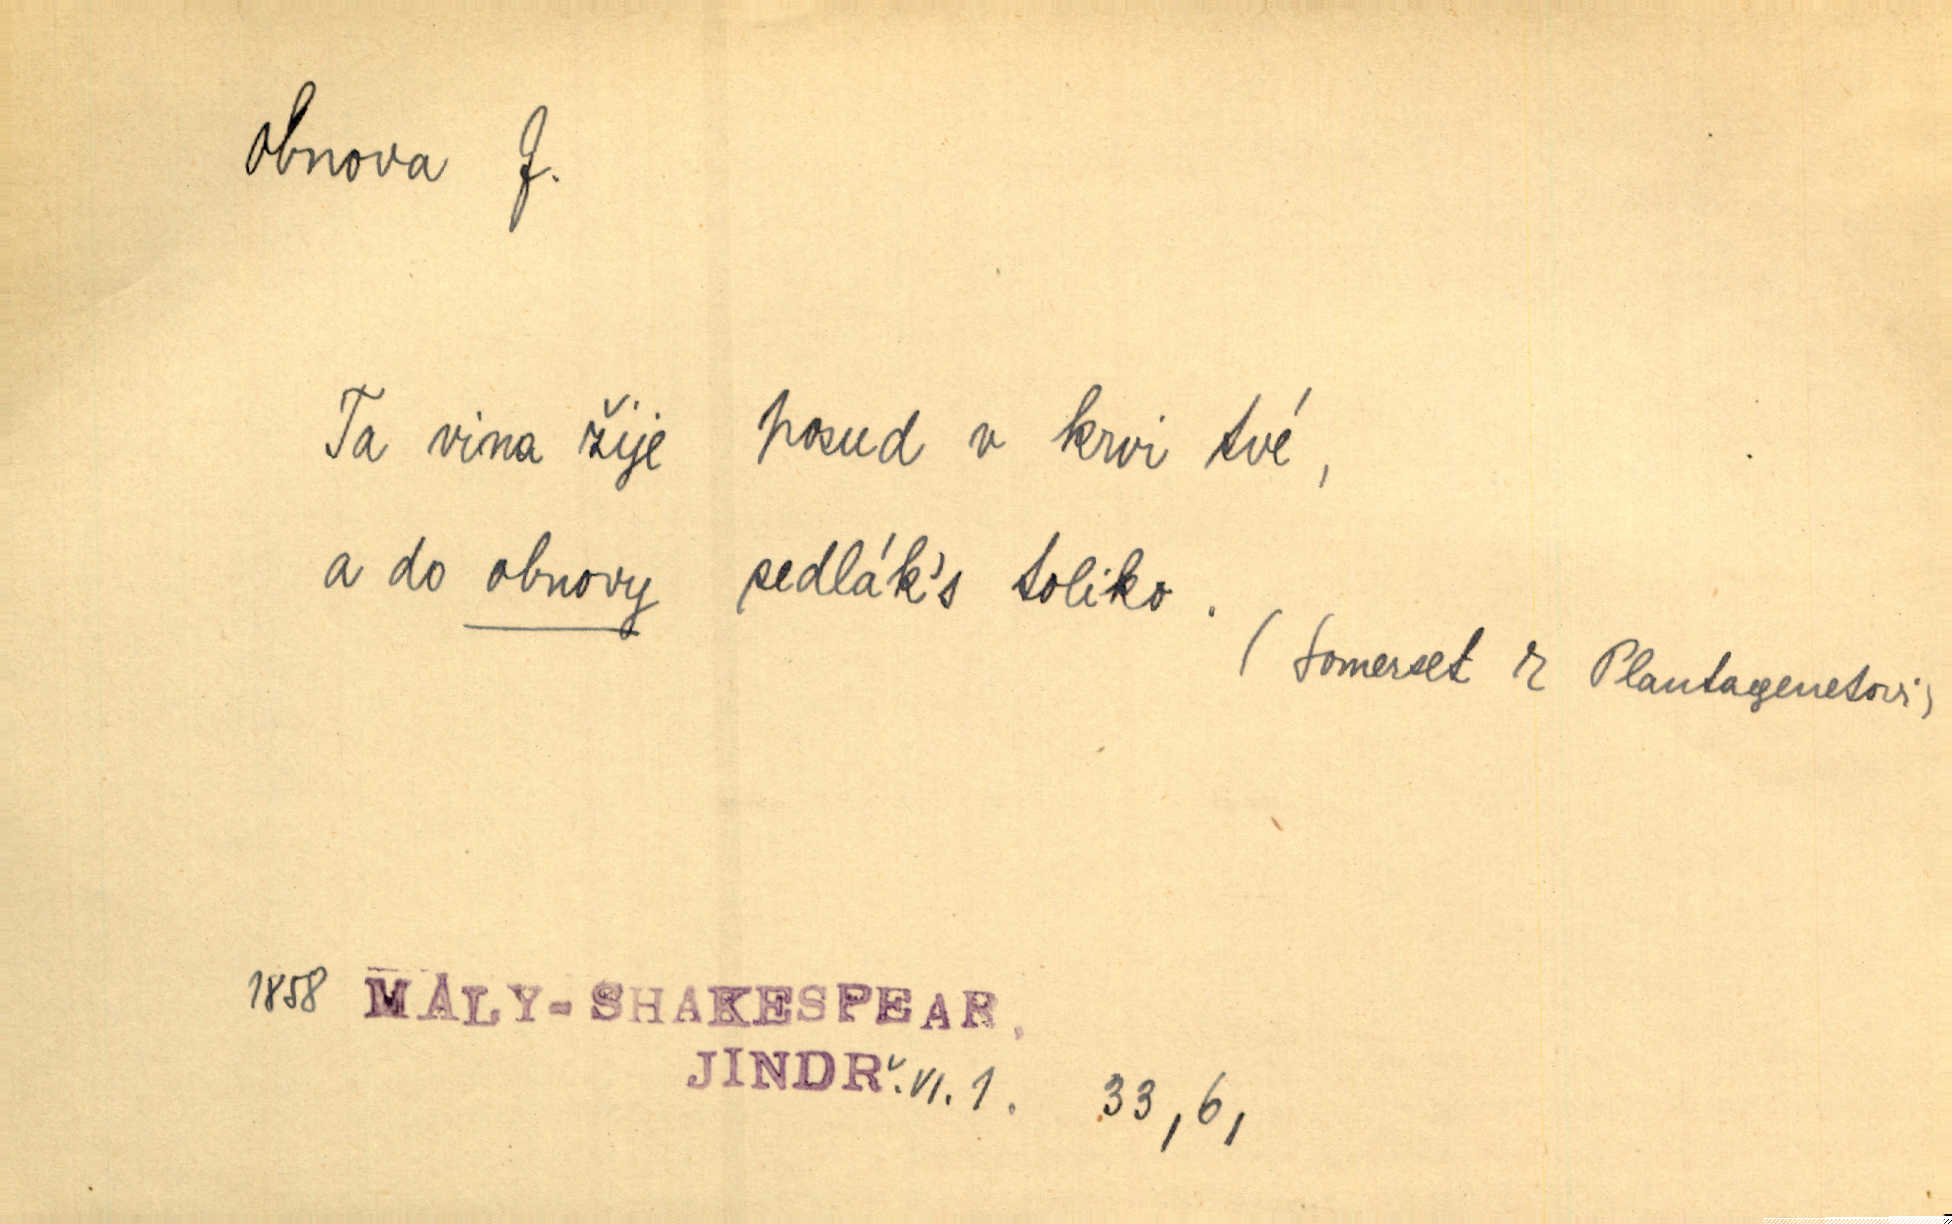 obnova f.
Ta vina žije posud v krvi tvé,
a do obnovy sedlák's toliko.
(Somerset k Plantagenetovi)
1858 MALY-SHAKESPEAR,
JINDŘ.VI.1. 33,6,